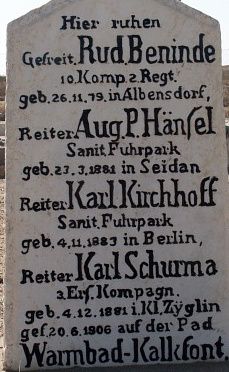 Hier ruhen
Gefreit. Rud. Beninde
10. Komp. 2. Regt.
geb. 26.11.79. in Albensdorf,
Reiter Aug. P. Hänsel
Sanit. Fuhrpark
geb. 23.3.1881 in Seidan
Reiter Karl Kirchhoff
Sanit. Fuhrpark
geb. 4.11.1883 in Berlin,
Reiter Karl Schurma
3. Ers. Kompagn.
geb. 4.12.1881 i. Kl. Zyglin
gef. 20.6.1906 auf der Pad
Warmbad-Kalkfont.